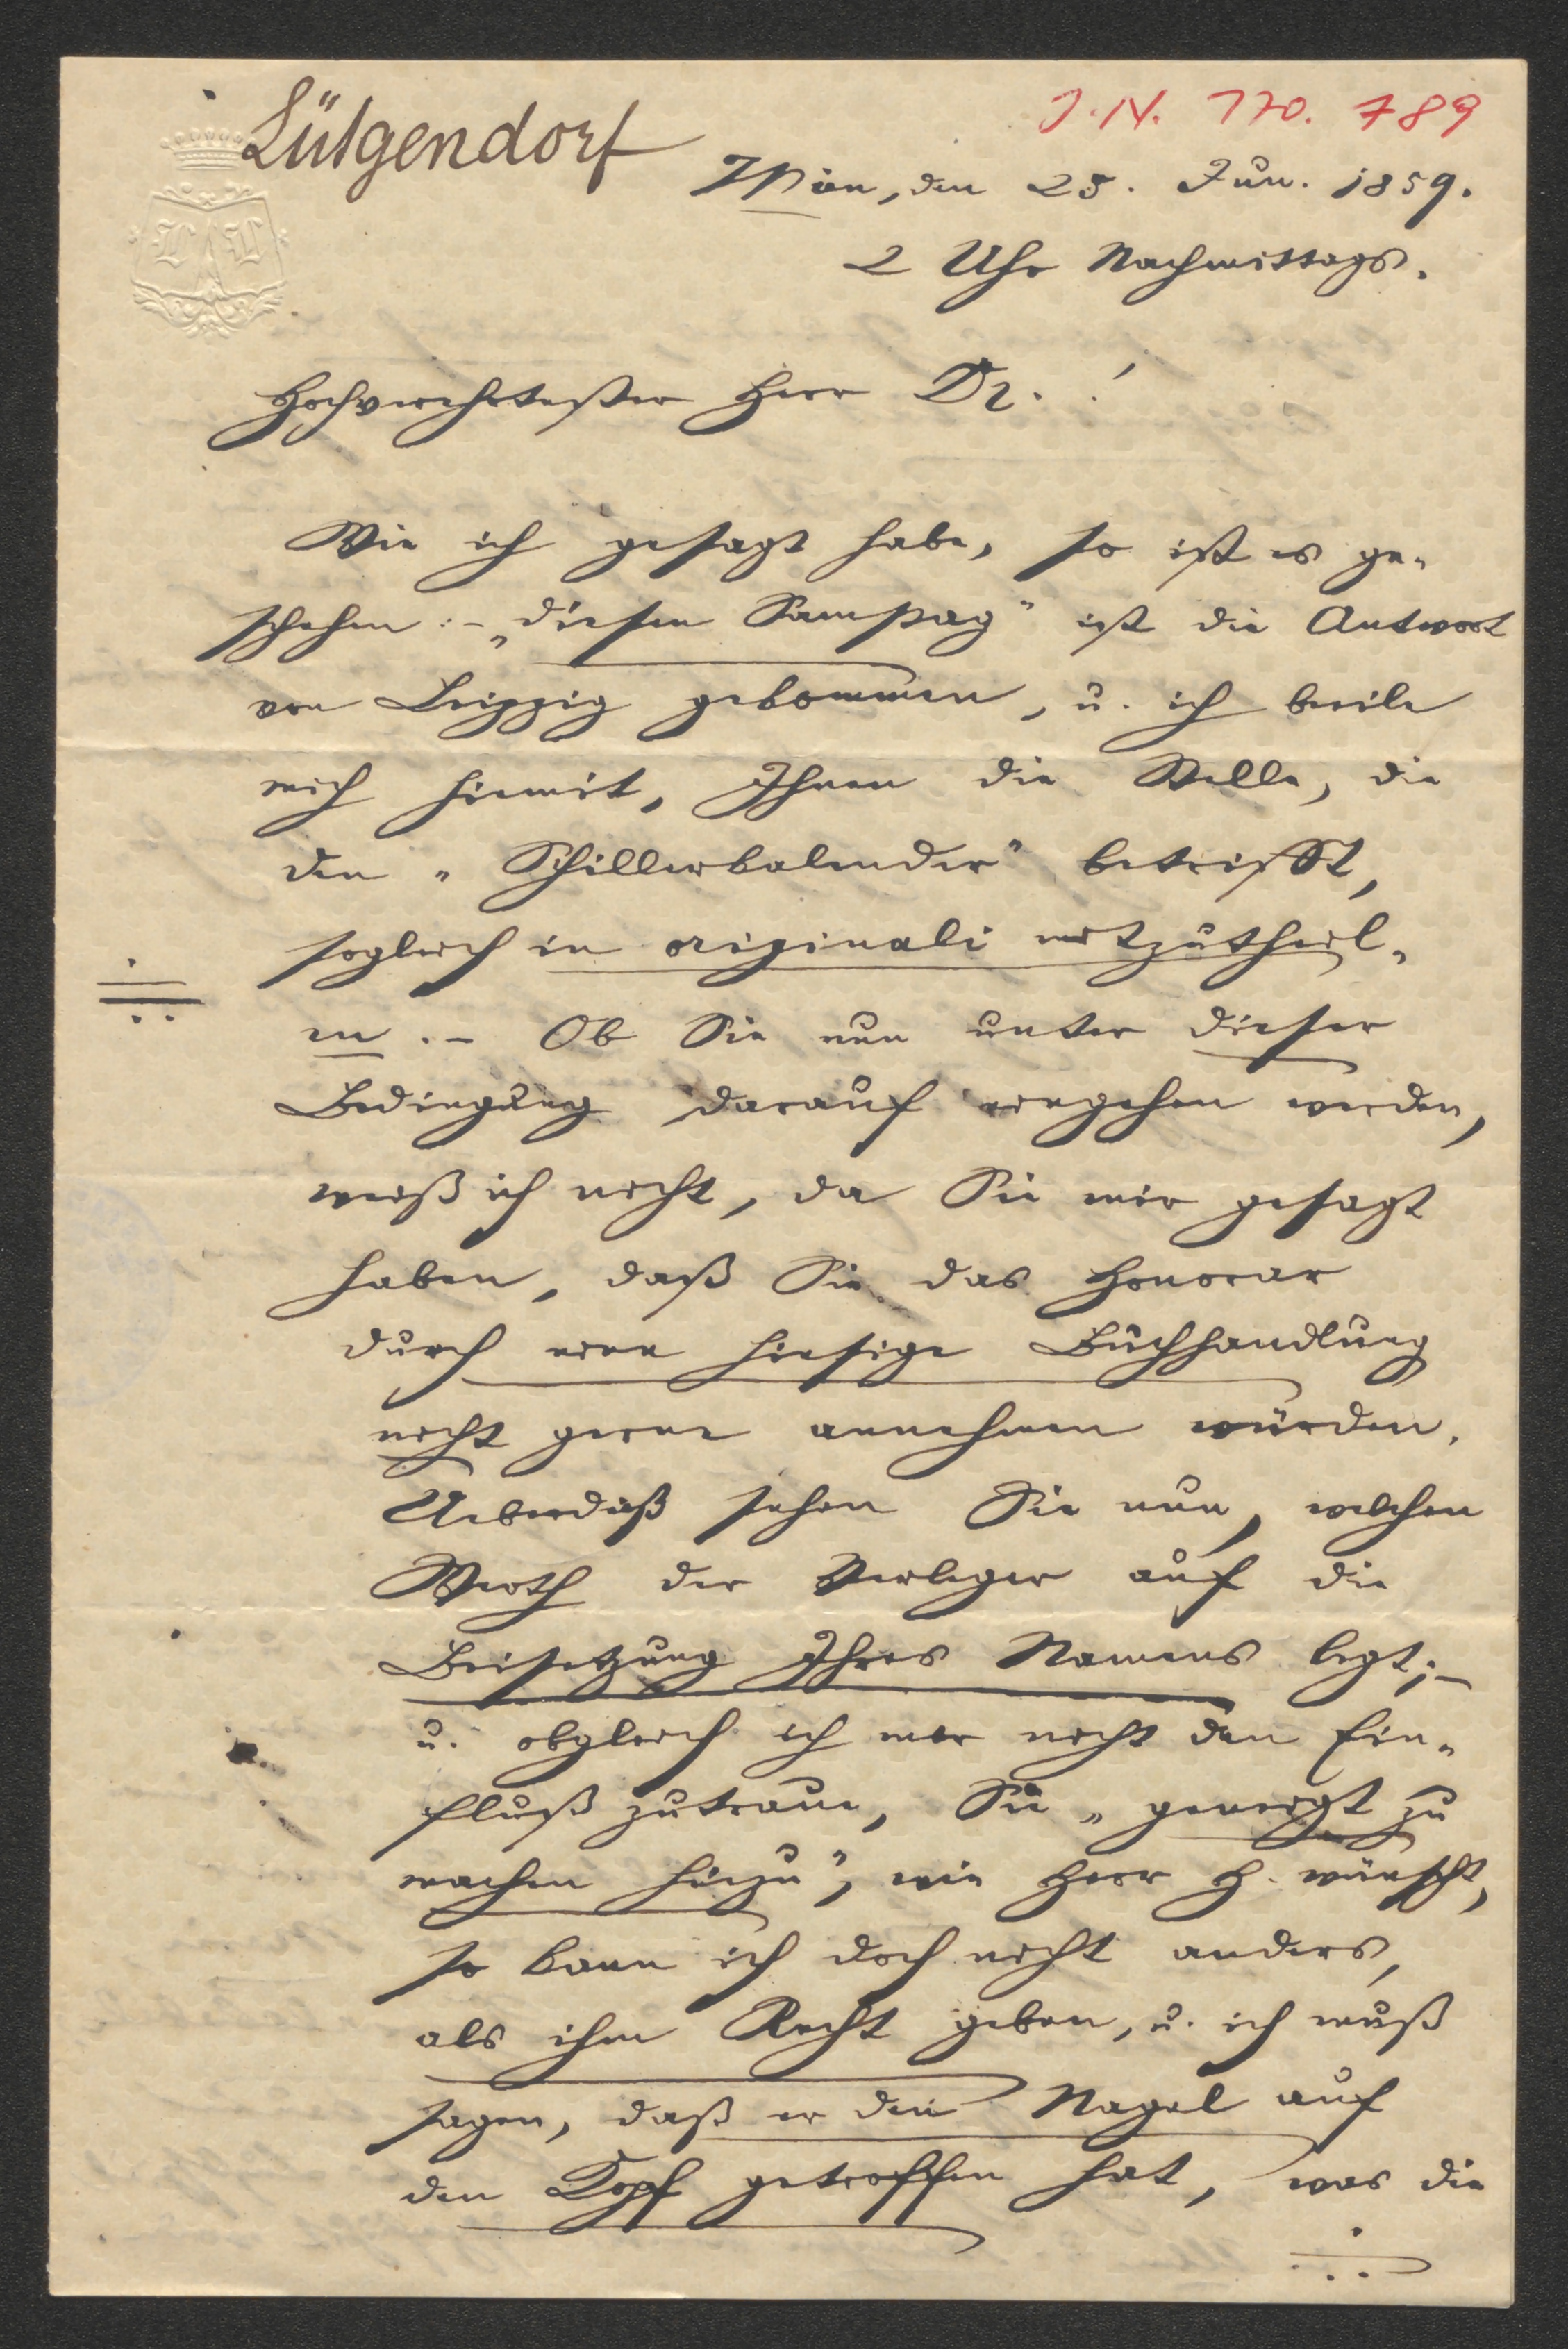 Lütgendorf
J.N. 170.789
Wien, den 25. Jun. 1859.
2 Uhr Nachmittags.
Hochverehrtester Herr Dr.!
Wie ich gesagt habe, so ist es ge-
schehen: – „diesen Samstag" ist die Antwort
von Leipzig gekommen, u. ich beeile
mich hiemit, Ihnen die Stelle, die
den „Schillerkalender" betrifft,
sogleich in originali mitzutheil-
en. – Ob Sie nun unter dieser
Bedingung darauf eingehen werden,
weiß ich nicht, da Sie mir gesagt
haben, daß Sie das Honorar
durch eine hiesige Buchhandlung
nicht gerne annehmen würden.
Ueberdieß sehen Sie nun, welchen
Werth der Verleger auf die
Beisetzung Ihres Namens legt; –
u. obgleich ich mir nicht den Ein-
fluß zutraue, Sie „geneigt zu
machen hiezu", wie Herr H. wünscht,
so kann ich doch nicht anders,
als ihm Recht geben, u. ich muß
sagen, daß er den Nagel auf
den Kopf getroffen hat, was die